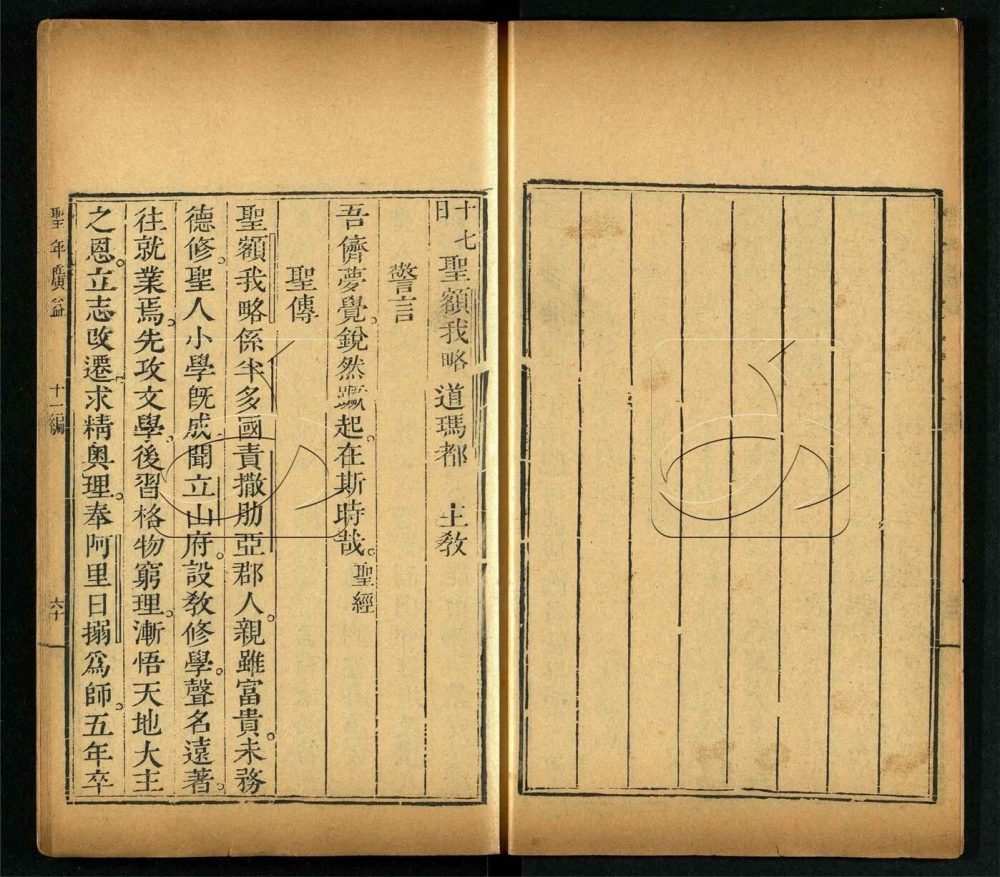 十七日聖額我略道瑪都主教
警言
吾儕夢覺銳然蹶起在斯時哉。聖經
聖傳
聖額我略係半多國責撒肋亞郡人。親雖富貴。未務
德修。聖人小學旣成聞立山府。設敎修學。聲名遠著。
往就業焉。先攻文學。後習格物窮理。漸悟天地大主
之恩。立志改遷。求精奧理。奉阿里日搦爲師。五年卒
聖年廣益 十一編 六十